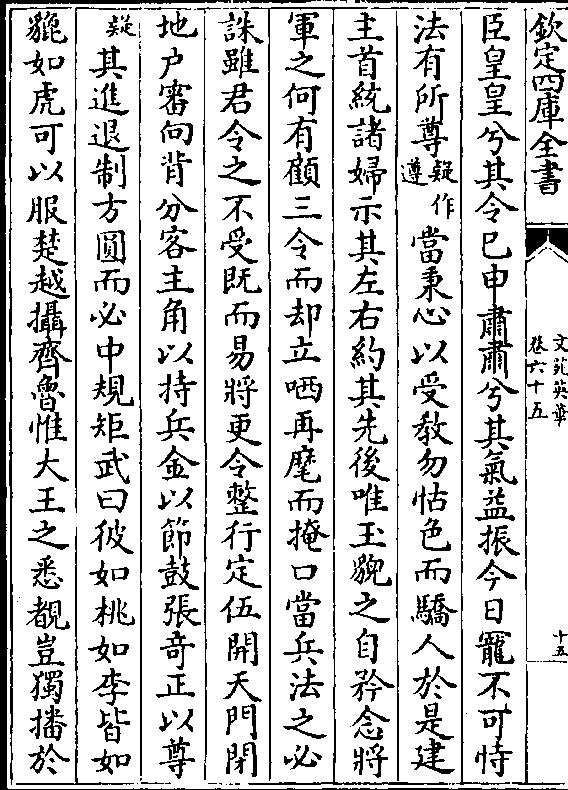 欽定四庫全書
文苑英華
卷六十五
十五
臣皇皇兮其令已申肅肅兮其氣益振今日寵不可恃
法有所尊疑作遵當秉心以受教勿怙色而驕人於是建
主首統諸婦示其左右約其先後唯玉貌之自矜念將
軍之何有顧三令而却立哂再麾而掩口當兵法之必
誅雖君令之不受既而易將更令整行定伍開天門閉
地户審向背分客主角以持兵金以節鼓張竒正以尊
疑其進退制方圓而必中規矩武曰彼如桃如李皆如
貔如虎可以服楚越攝齊魯惟大王之悉覩豈獨播於